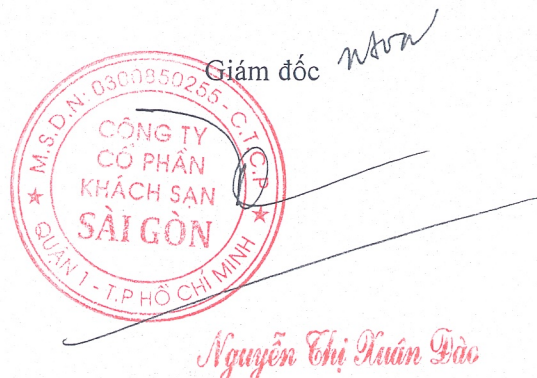 Giám đốc
M.S.D.N: 0300850255 - C.T.C.P
CÔNG TY
CỔ PHẦN
KHÁCH SẠN
SÀI GÒN
QUẬN 1 - T.P HỒ CHÍ MINH
Nguyễn Thị Xuân Đào